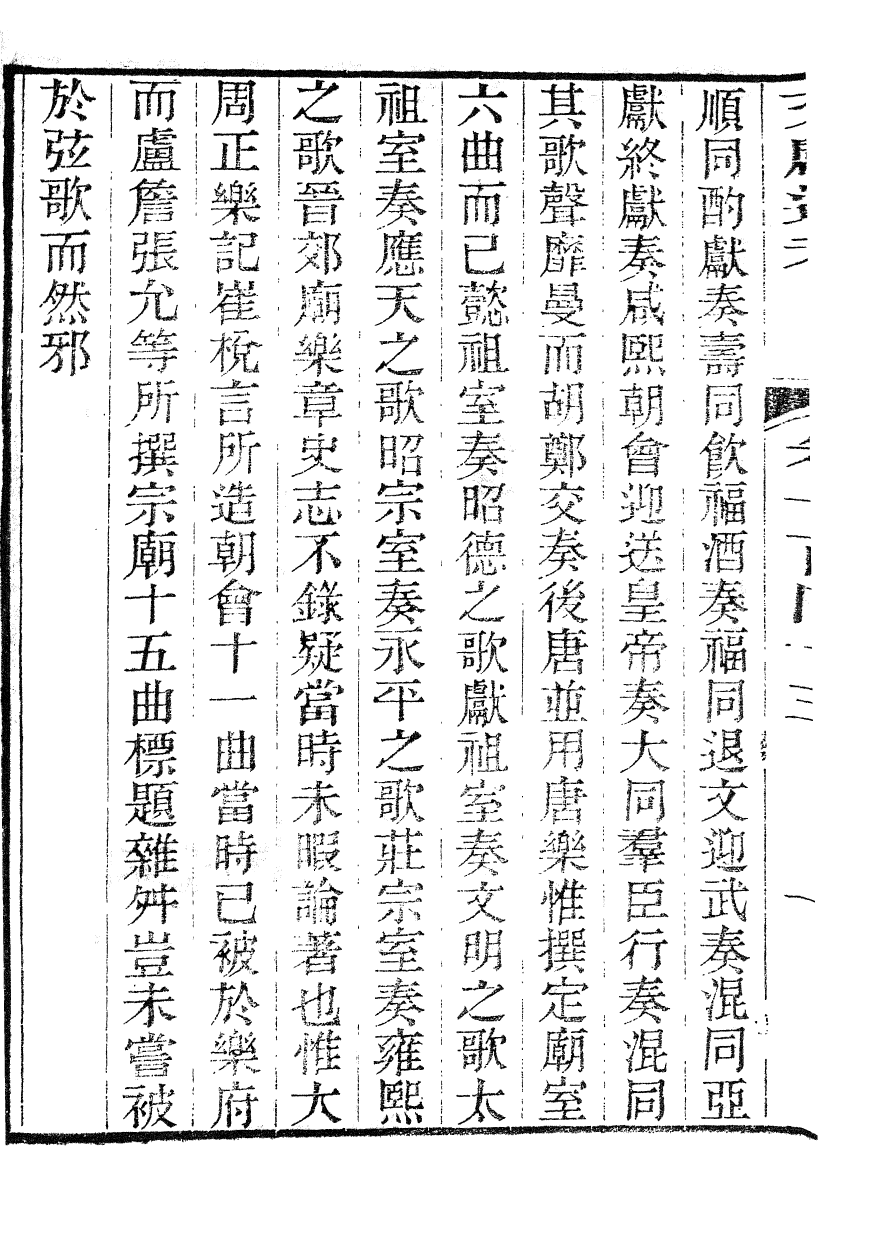 順同酌獻奏壽同飮福酒奏福同退文迎武奏混同亞
獻終獻奏咸熙朝會迎送皇帝奏大同羣臣行奏混同
其歌聲靡曼而胡鄭交奏後唐並用唐樂惟撰定廟室
六曲而已懿祖室奏昭德之歌獻祖室奏文明之歌太
祖室奏應天之歌昭宗室奏永平之歌莊宗室奏雍熙
之歌晉郊廟樂章史志不錄疑當時未暇論著也惟大
周正樂記崔梲言所造朝會十一曲當時已被於樂府
而盧詹張允等所撰宗廟十五曲標題雜舛豈未嘗被
於弦歌而然邪